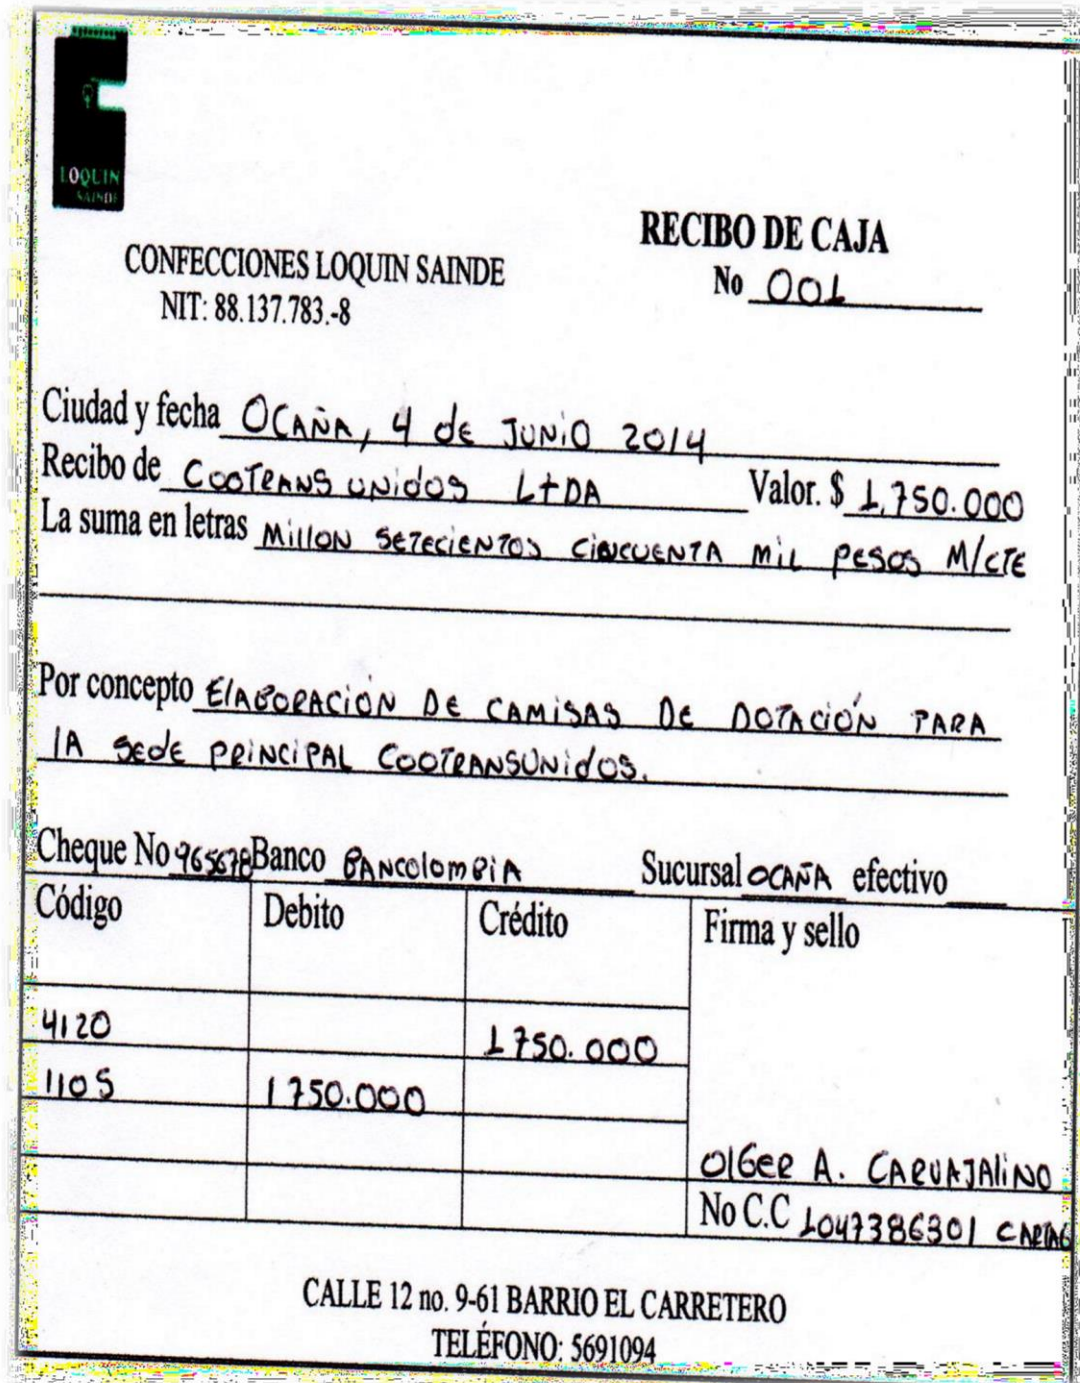 LOQUIN
SAINDE
RECIBO DE CAJA
No 001
CONFECCIONES LOQUIN SAINDE
NIT: 88.137.783.-8
Ciudad y fecha OCAÑA, 4 de JUNIO 2014
Recibo de COOTRANS UNIDOS LTDA Valor. $ 1.750.000
La suma en letras Millon SETECIENTOS CINCUENTA MIL PESOS M/CTE
Por concepto ElABORACIÓN DE CAMISAS DE DOTACIÓN PARA
lA SEDE PRINCIPAL COOTRANSUNIDOS.
Cheque No 965678 Banco BANcolombia Sucursal OCAÑA efectivo
Código Debito Crédito Firma y sello
4120 1750.000
1105 1750.000
OlGER A. CARVAJAliNO
No C.C 1047386301 CARTAG
CALLE 12 no. 9-61 BARRIO EL CARRETERO
TELÉFONO: 5691094